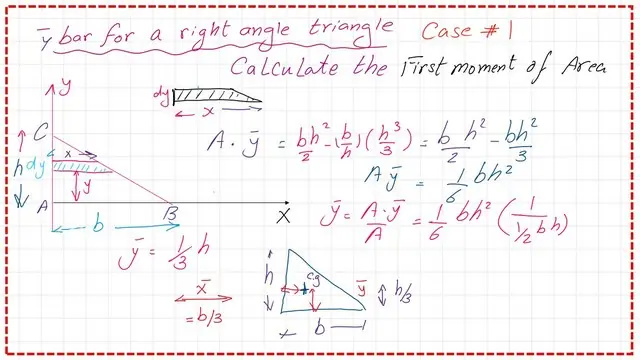 ȳ bar for a right angle triangle Case #1
Calculate the First moment of Area
y
dy
x
C
h
dy
x
y
A
B
X
b
A·ȳ = bh²/2 - (b/h)(h³/3) = b h²/2 - bh²/3
Aȳ = 1/6 bh²
ȳ = A·ȳ/A = 1/6 bh² (1/(1/2 bh))
ȳ = 1/3 h
x̄
= b/3
h
c.g
ȳ
h/3
b